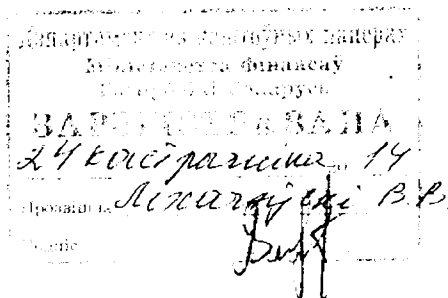 Дэпартамент па каштоўных паперах
Міністэрства фінансаў
Рэспублікі Беларусь
ЗАРЭГІСТРАВАНА
24 кастрычніка 14
Прозвішча В.В.
Подпіс